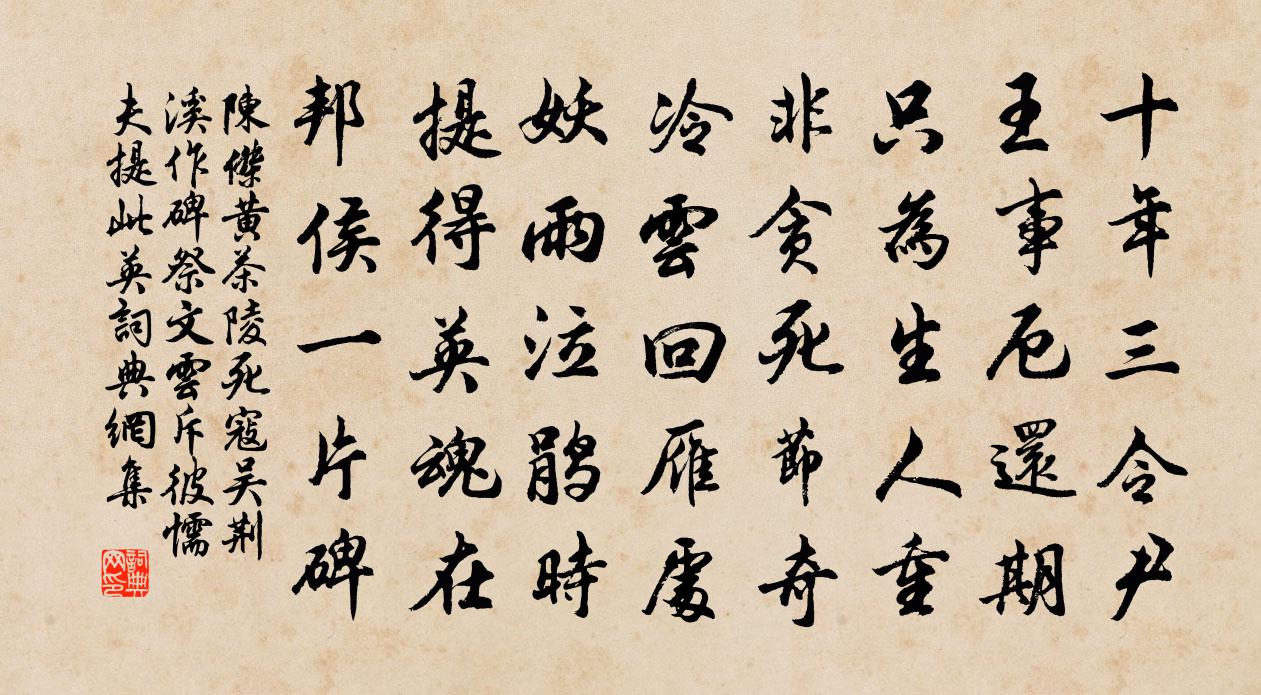 十年三令尹
王事厄還期
只為生人重
非貪死節奇
冷雲回雁處
妖雨泣鵑時
提得英魂在
邦侯一片碑
陳傑黄茶陵死寇吴荆
溪作碑祭文雲斥彼懦
夫提此英詞典網集
詞典网印